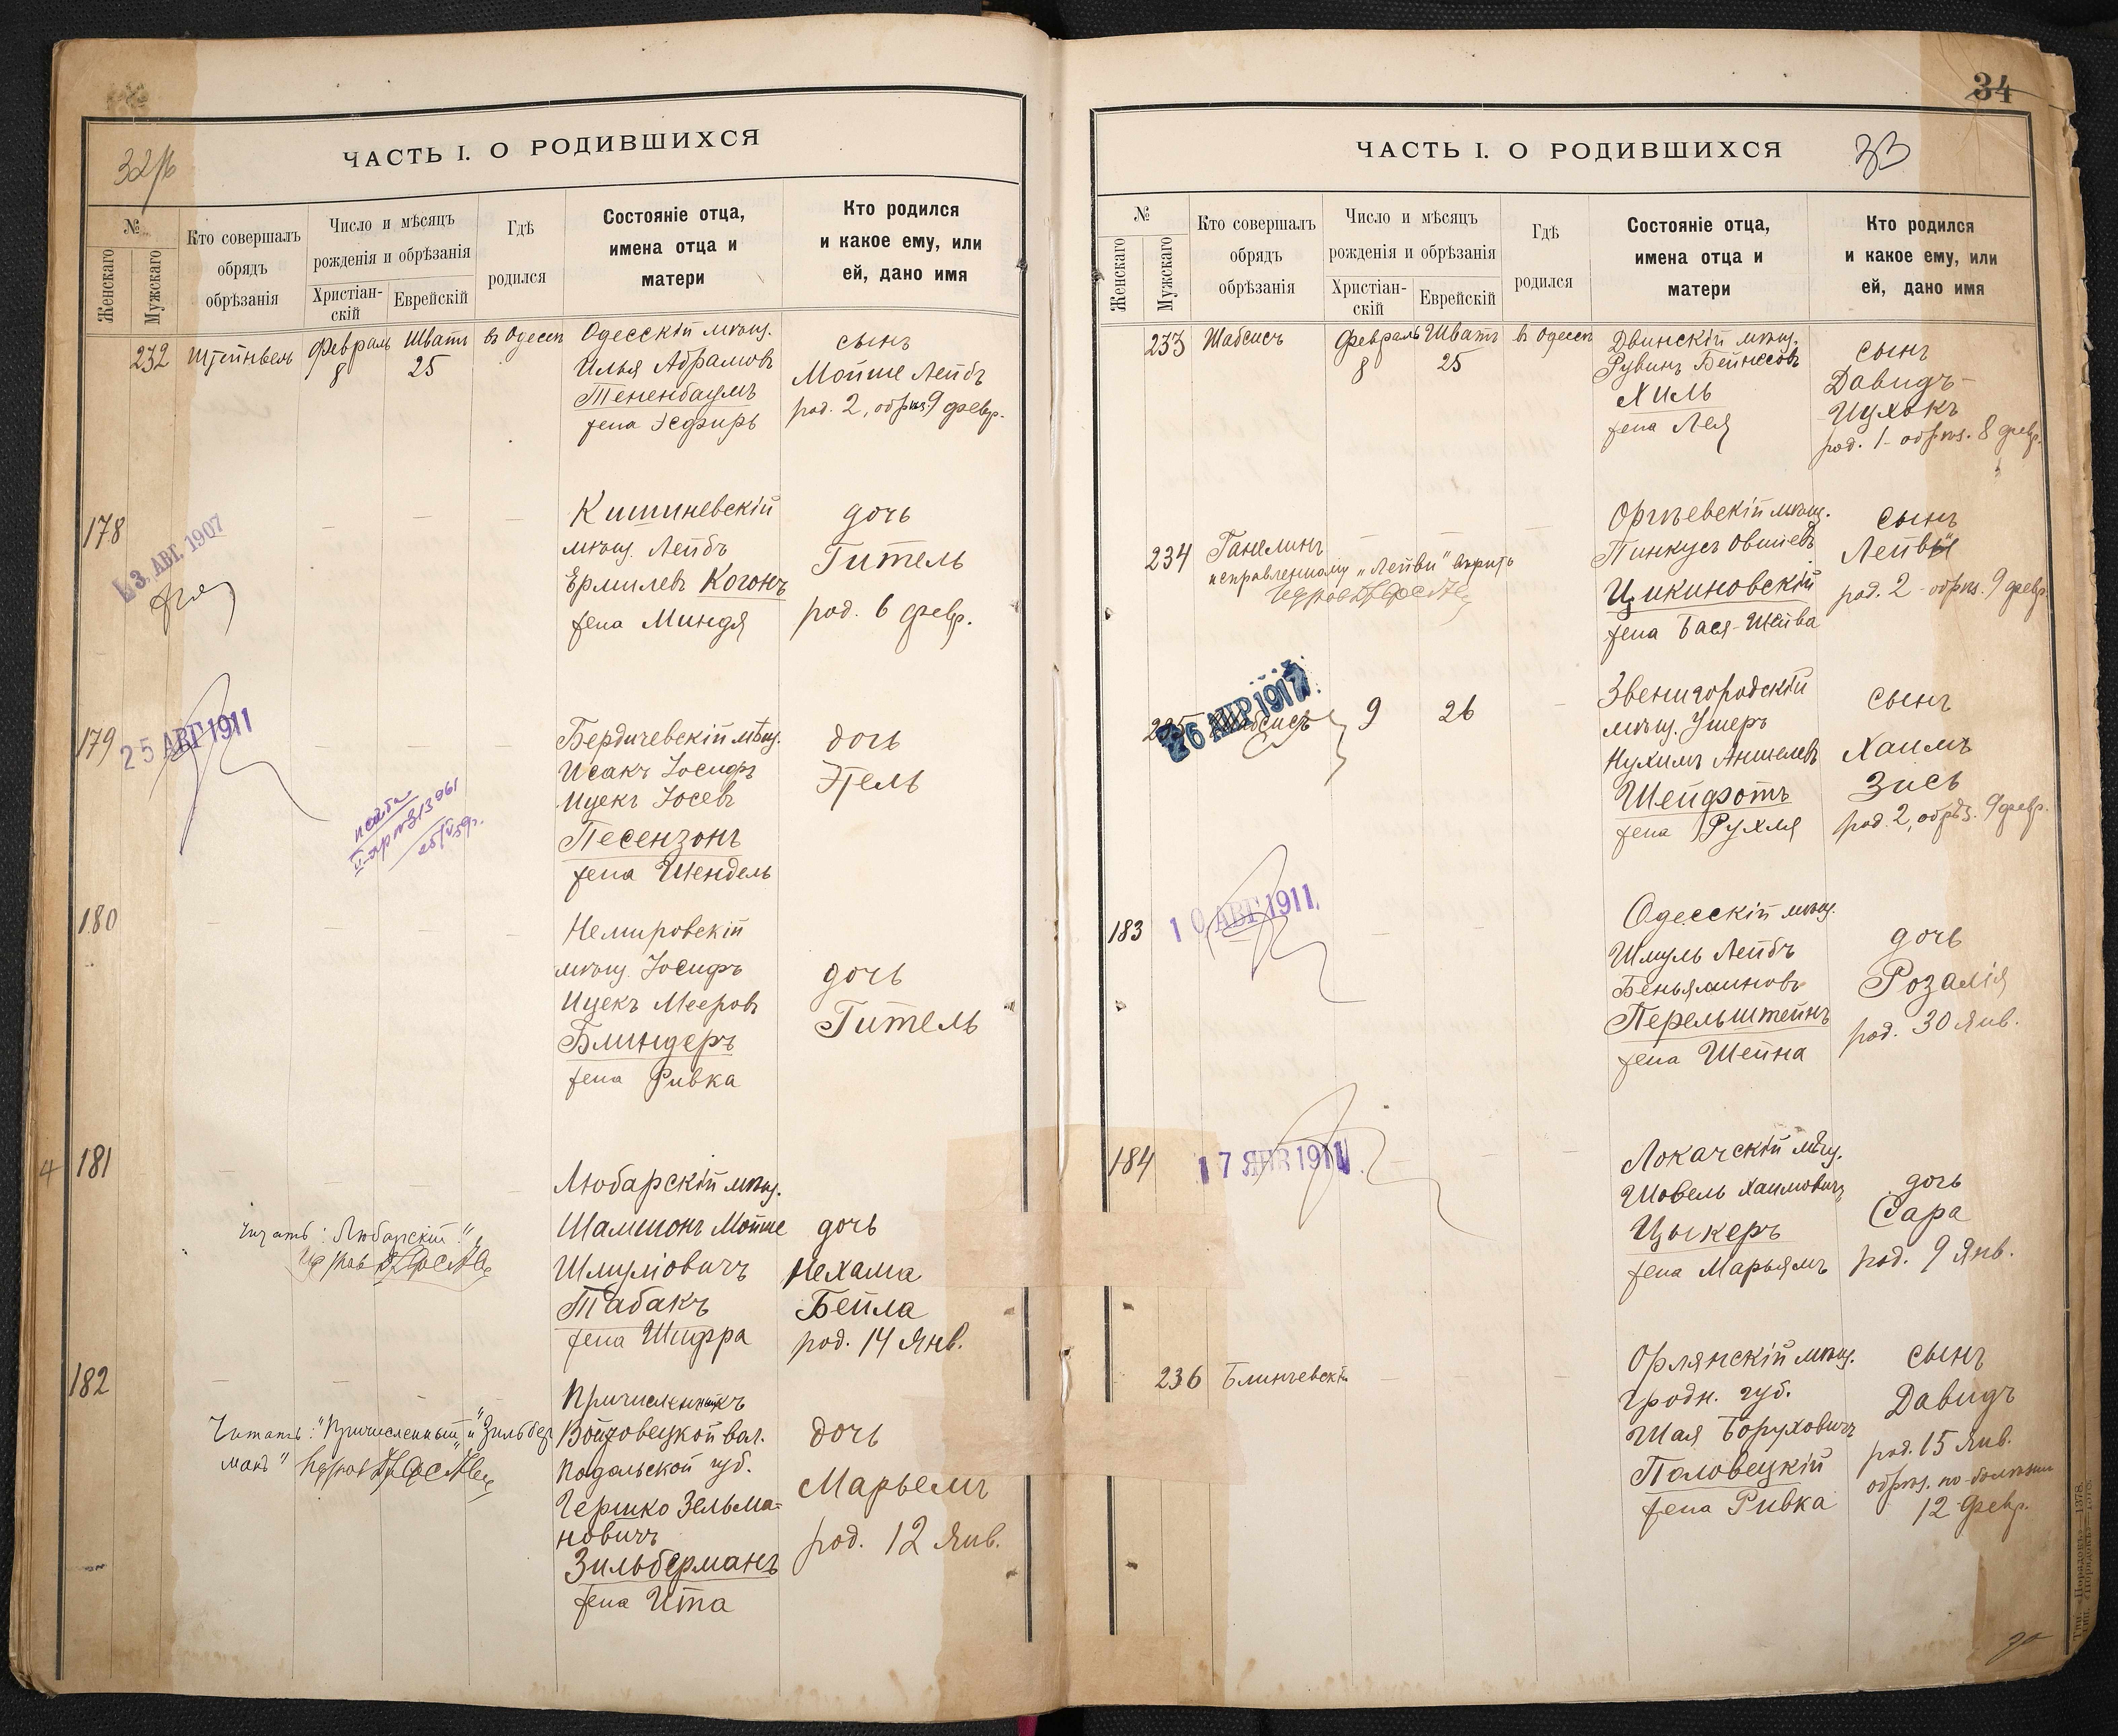 32/б
ЧАСТЬ I. О РОДИВШИХСЯ
№
Женскаго
Мужскаго
Кто совершалъ
обрядъ
обрѣзанія
Число и мѣсяцъ
рожденія и обрѣзанія
Христіан-
скій
Еврейскій
Гдѣ
родился
Состояніе отца,
имена отца и
матери
Кто родился
и какое ему, или
ей, дано имя
232
Февраль
8
Шватъ
25
въ Одессѣ
Одесскій мѣщ.
Илья Абрамовъ
Тененбаумъ
жена Эсфирь
сынъ
Мойше Лейбъ
род. 2, обрѣз. 9 февр.
178
3 АВГ. 1907
Кишиневскій
мѣщ. Лейбъ
Ермилевъ Когонъ
жена Миндя
дочь
Гитель
род. 6 февр.
179
25 АВГ 1911
Бердичевскій мѣщ.
Исакъ Іосифъ
Ицекъ Іосевъ
Песензонъ
жена Шендель
дочь
Этель
180
Немировскій
мѣщ. Іосифъ
Ицекъ Мееровъ
Блиндеръ
жена Ривка
дочь
Гитель
4
181
Читать: "Любарскій"
Любарскій мѣщ.
Шамшонъ Мойше
Шмуліовичъ
Табакъ
жена Шифра
дочь
Нехама
Бейла
род. 14 Янв.
182
Читать: "Причисленный" и "Зильбер
манъ"
Причисленный къ
Войтовецкой вол.
Подольской губ.
Гершко Зельма-
новичъ
Зильберманъ
жена Ита
дочь
Марьемъ
род. 12 Янв.
34
ЧАСТЬ I. О РОДИВШИХСЯ
33
№
Женскаго
Мужскаго
Кто совершалъ
обрядъ
обрѣзанія
Число и мѣсяцъ
рожденія и обрѣзанія
Христіан-
скій
Еврейскій
Гдѣ
родился
Состояніе отца,
имена отца и
матери
Кто родился
и какое ему, или
ей, дано имя
233
Шабсисъ
Февраль
8
Шватъ
25
въ Одессѣ
Двинскій мѣщ.
Рувинъ Бейнесовъ
Хиль
жена Лея
сынъ
Давидъ-
Ицхокъ
род. 1 - обрѣз. 8 февр.
234
Ганелинъ
исправленному "Лейви" вѣрить
Оргѣевскій мѣщ.
Пинкусъ Овшіевъ
Цикиновскій
жена Бася-Шейва
сынъ
Лейви
род. 2 - обрѣз. 9 февр.
235
Шабсисъ
26 АПР 1917
9
26
Звенигородскій
мѣщ. Ушеръ
Нухимъ Аншелевъ
Шейфотъ
жена Рухля
сынъ
Хаимъ
Зись
род. 2, обрѣз. 9 февр.
183
10 АВГ 1911
Одесскій мѣщ.
Шмуль Лейбъ
Беньяминовъ
Перельштейнъ
жена Шейна
дочь
Розалія
род. 30 Янв.
184
17 ЯНВ 1911
Локачскій мѣщ.
Шовель Хаимовичъ
Цыкеръ
жена Марьямъ
дочь
Сара
род. 9 Янв.
236
Блинчевскій
Орлянскій мѣщ.
Гродн. губ.
Шая Боруховичъ
Половецкій
жена Ривка
сынъ
Давидъ
род. 15 Янв.
обрѣз. по болѣзни
12 Февр.